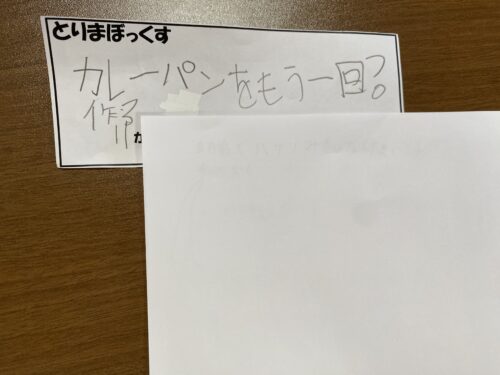 とりまぼっくす
カレーパンをもう一回?
作ろ